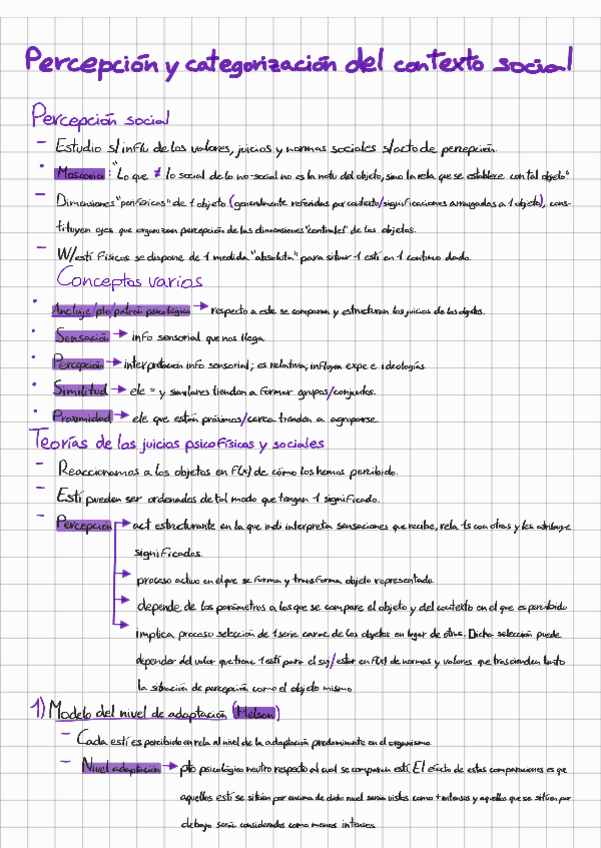 Percepción y categorización del contexto social
Percepción social
- Estudio s/influ de los valores, juicios y normas sociales s/acto de percepción.
• Moscovici: "Lo que ≠ lo social de lo no-social no es la natu del objeto, sino la rela que se establece con tal objeto"
- Dimensiones "periféricas" de 1 objeto (generalmente referidas por contexto/significaciones arraigadas a 1 objeto), cons-
tituyen ejes que organizan percepción de las dimensiones "centrales" de los objetos.
- W/estí físicos se dispone de 1 medida "absoluta" para situar 1 estí en 1 continuo dado.
Conceptos varios
• Anclaje/pto/patrón psicológico → respecto a este se comparan y estructuran los juicios de los objetos.
• Sensación → info sensorial que nos llega
• Percepción → interpretación info sensorial; es relativa; influyen expe e ideologías
• Similitud → ele = y similares tienden a formar grupos/conjuntos.
• Proximidad → ele que están próximos/cerca tienden a agruparse
Teorías de los juicios psicofísicos y sociales
- Reaccionamos a los objetos en F(x) de cómo los hemos percibido.
- Estí pueden ser ordenados de tal modo que tengan 1 significado.
- Percepción → act estructurante en la que indi interpreta sensaciones que recibe, rela 1s con otras y les atribuye
significados.
→ proceso activo en el que se forma y transforma objeto representado
→ depende de los parámetros a los que se compare el objeto y del contexto en el que es percibido
→ implica proceso selección de 1 serie carac de los objetos en lugar de otras. Dicha selección puede
depender del valor que tiene 1 estí para el suj/estar en F(x) de normas y valores que trascienden tanto
la situación de percepción como el objeto mismo
1) Modelo del nivel de adaptación (Helson)
- Cada estí es percibido en rela al nivel de la adaptación predominante en el organismo
- Nivel adaptación → pto psicológico neutro respecto al cual se comparan estí. El efecto de estas comparaciones es que
aquellos estí se sitúan por encima de dicho nivel serán vistos como + intensos y aquellos que se sitúan por
debajo serán considerados como menos intensos.